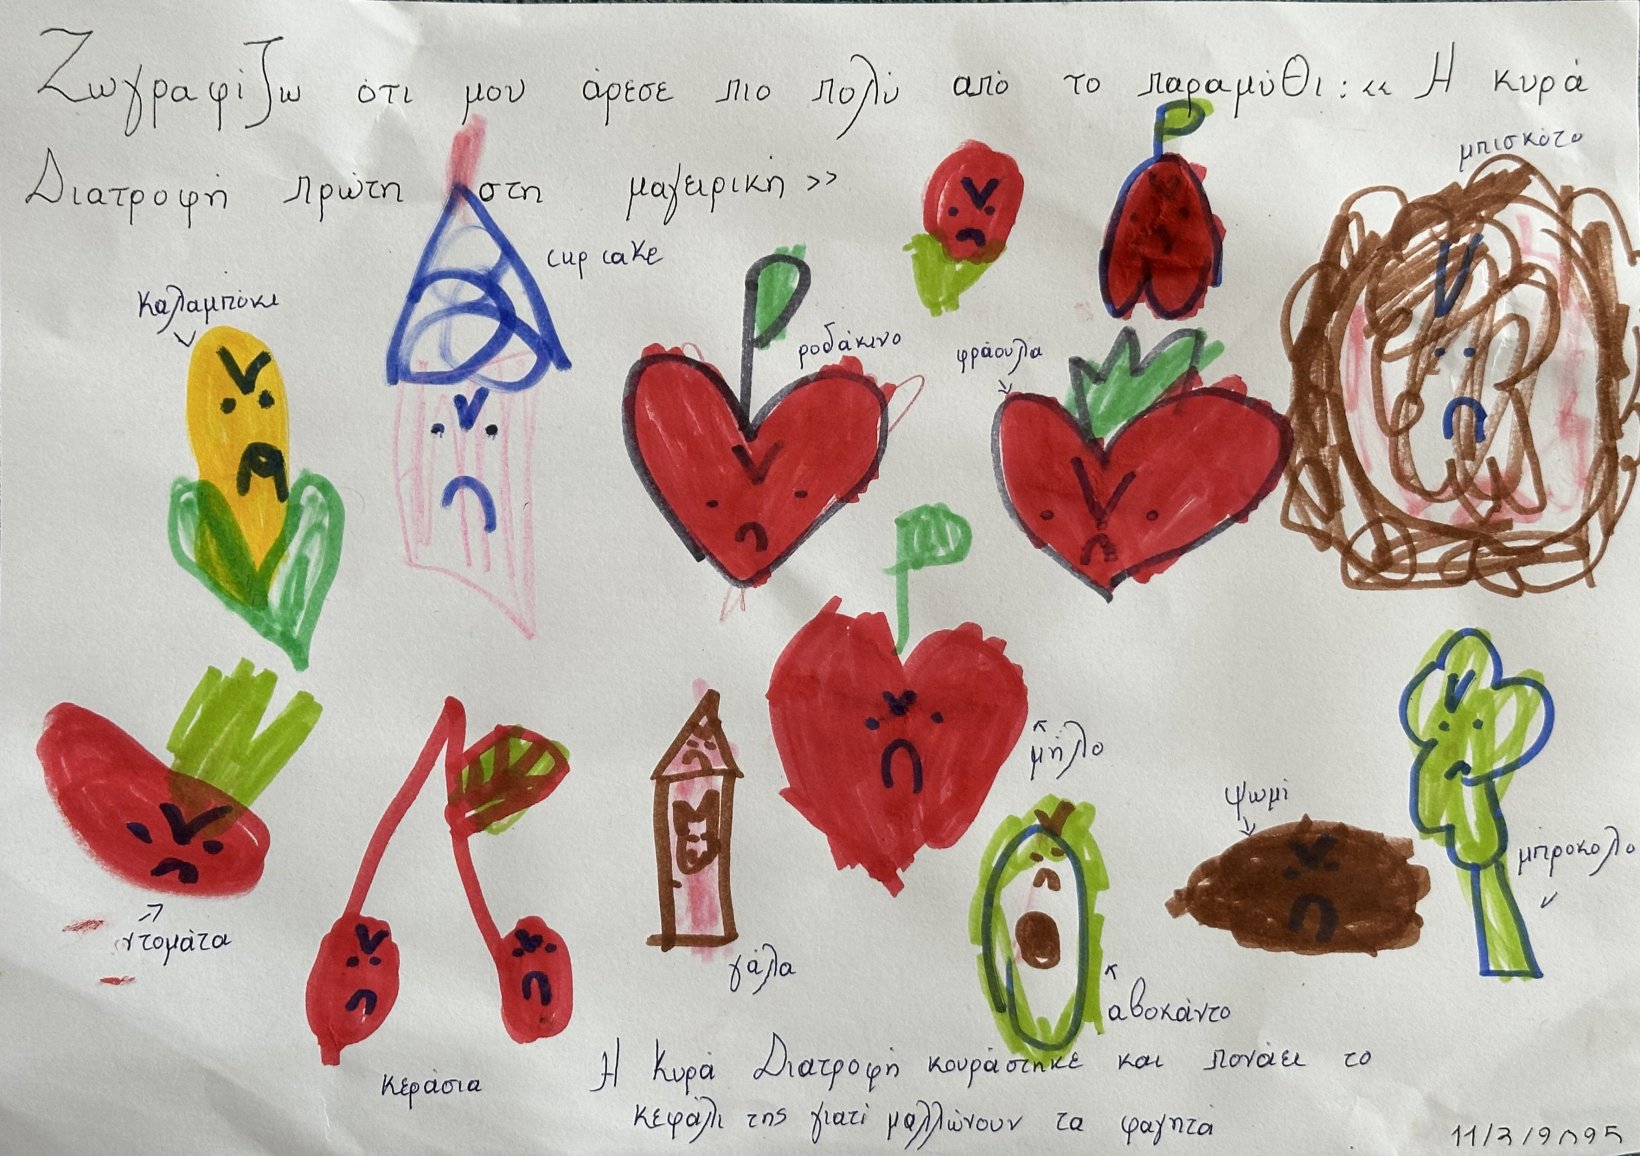 Ζωγραφίζω ότι μου άρεσε πιο πολύ από το παραμύθι: << Η κυρά
Διατροφή πρώτη στη μαγειρική >>
μπισκότο
cup cake
καλαμπόκι
ροδάκινο
φράουλα
μήλο
ψωμί
μπρόκολο
ντομάτα
γάλα
αβοκάντο
κεράσια
Η Κυρά Διατροφή κουράστηκε και πονάει το
κεφάλι της γιατί μαλλώνουν τα φαγητά